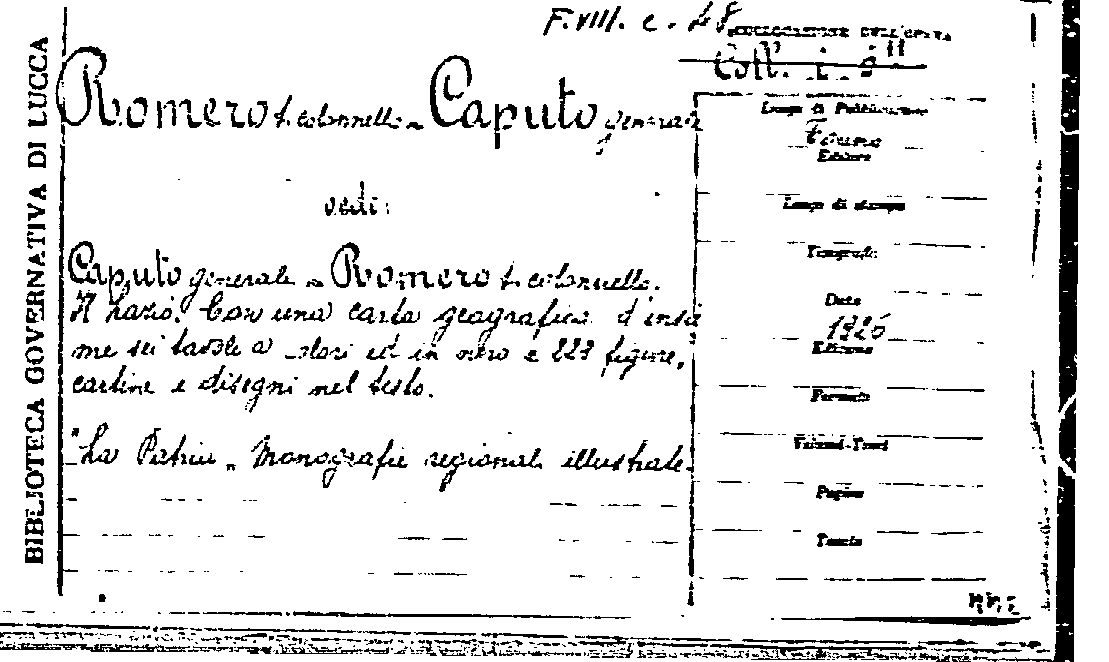 F. VIII. c. 48
COLLOCAZIONE DELL'OPERA
BIBLIOTECA GOVERNATIVA DI LUCCA
Romero t. colonnello - Caputo generale
vedi:
Caputo generale - Romero t. colonnello.
Il Lazio. Con una carta geografica d'insie
me sei tavole a colori ed in nero e 223 figure,
cartine e disegni nel testo.
"La Patria" Monografie regionali illustrate.
Luogo di Pubblicazione
Torino
Editore
Luogo di stampa
Tipografo
Data
1925
Edizione
Formato
Volumi-Tomi
Pagine
Tavole